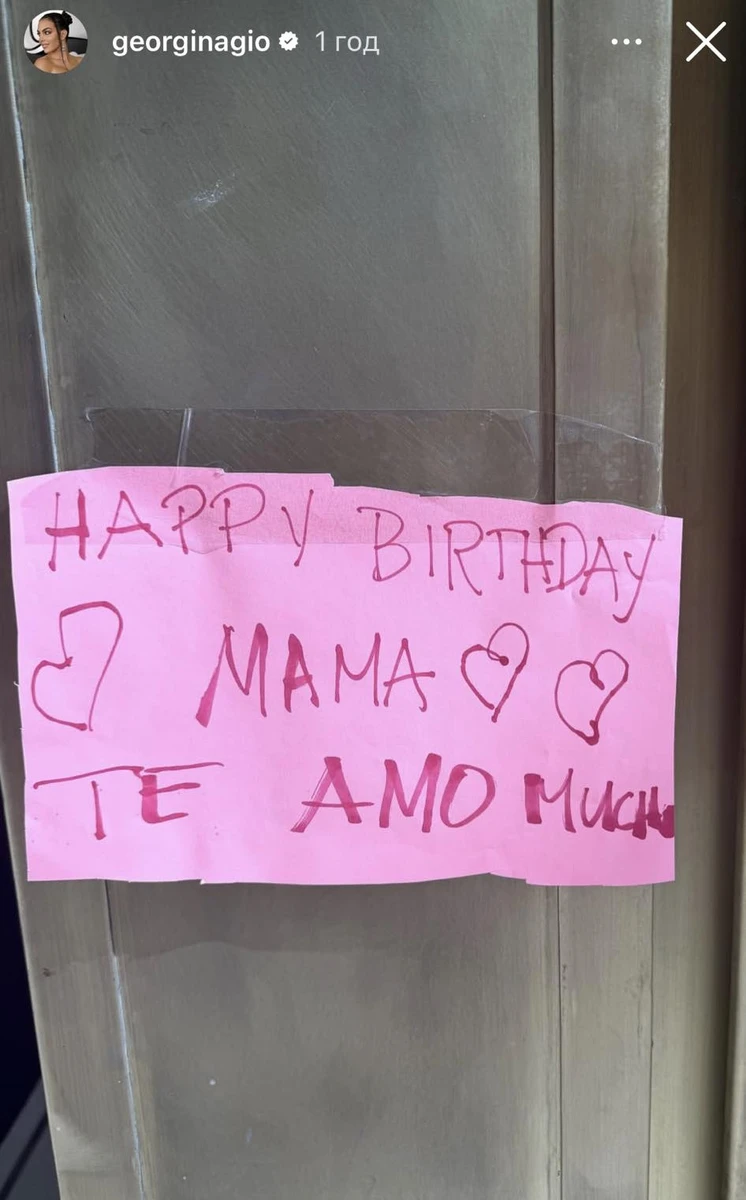 georginagio 1 год
HAPPY BIRTHDAY
MAMA
TE AMO